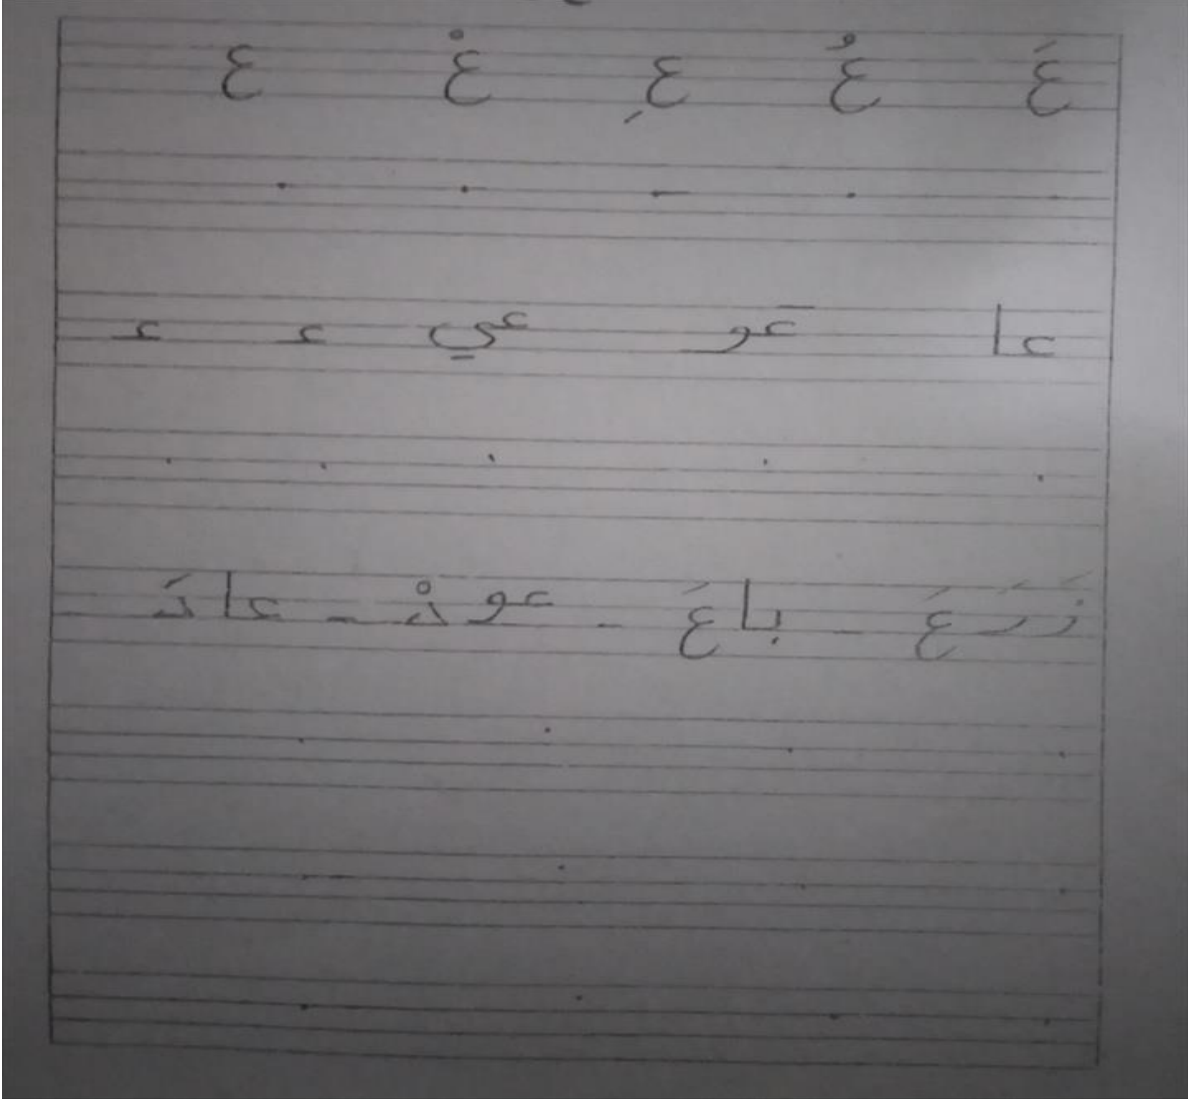 عَ عُ عِ عْ ع
عا عو عي عـ ـعـ
زَرَعَ - باعَ - عودْ - عادَ